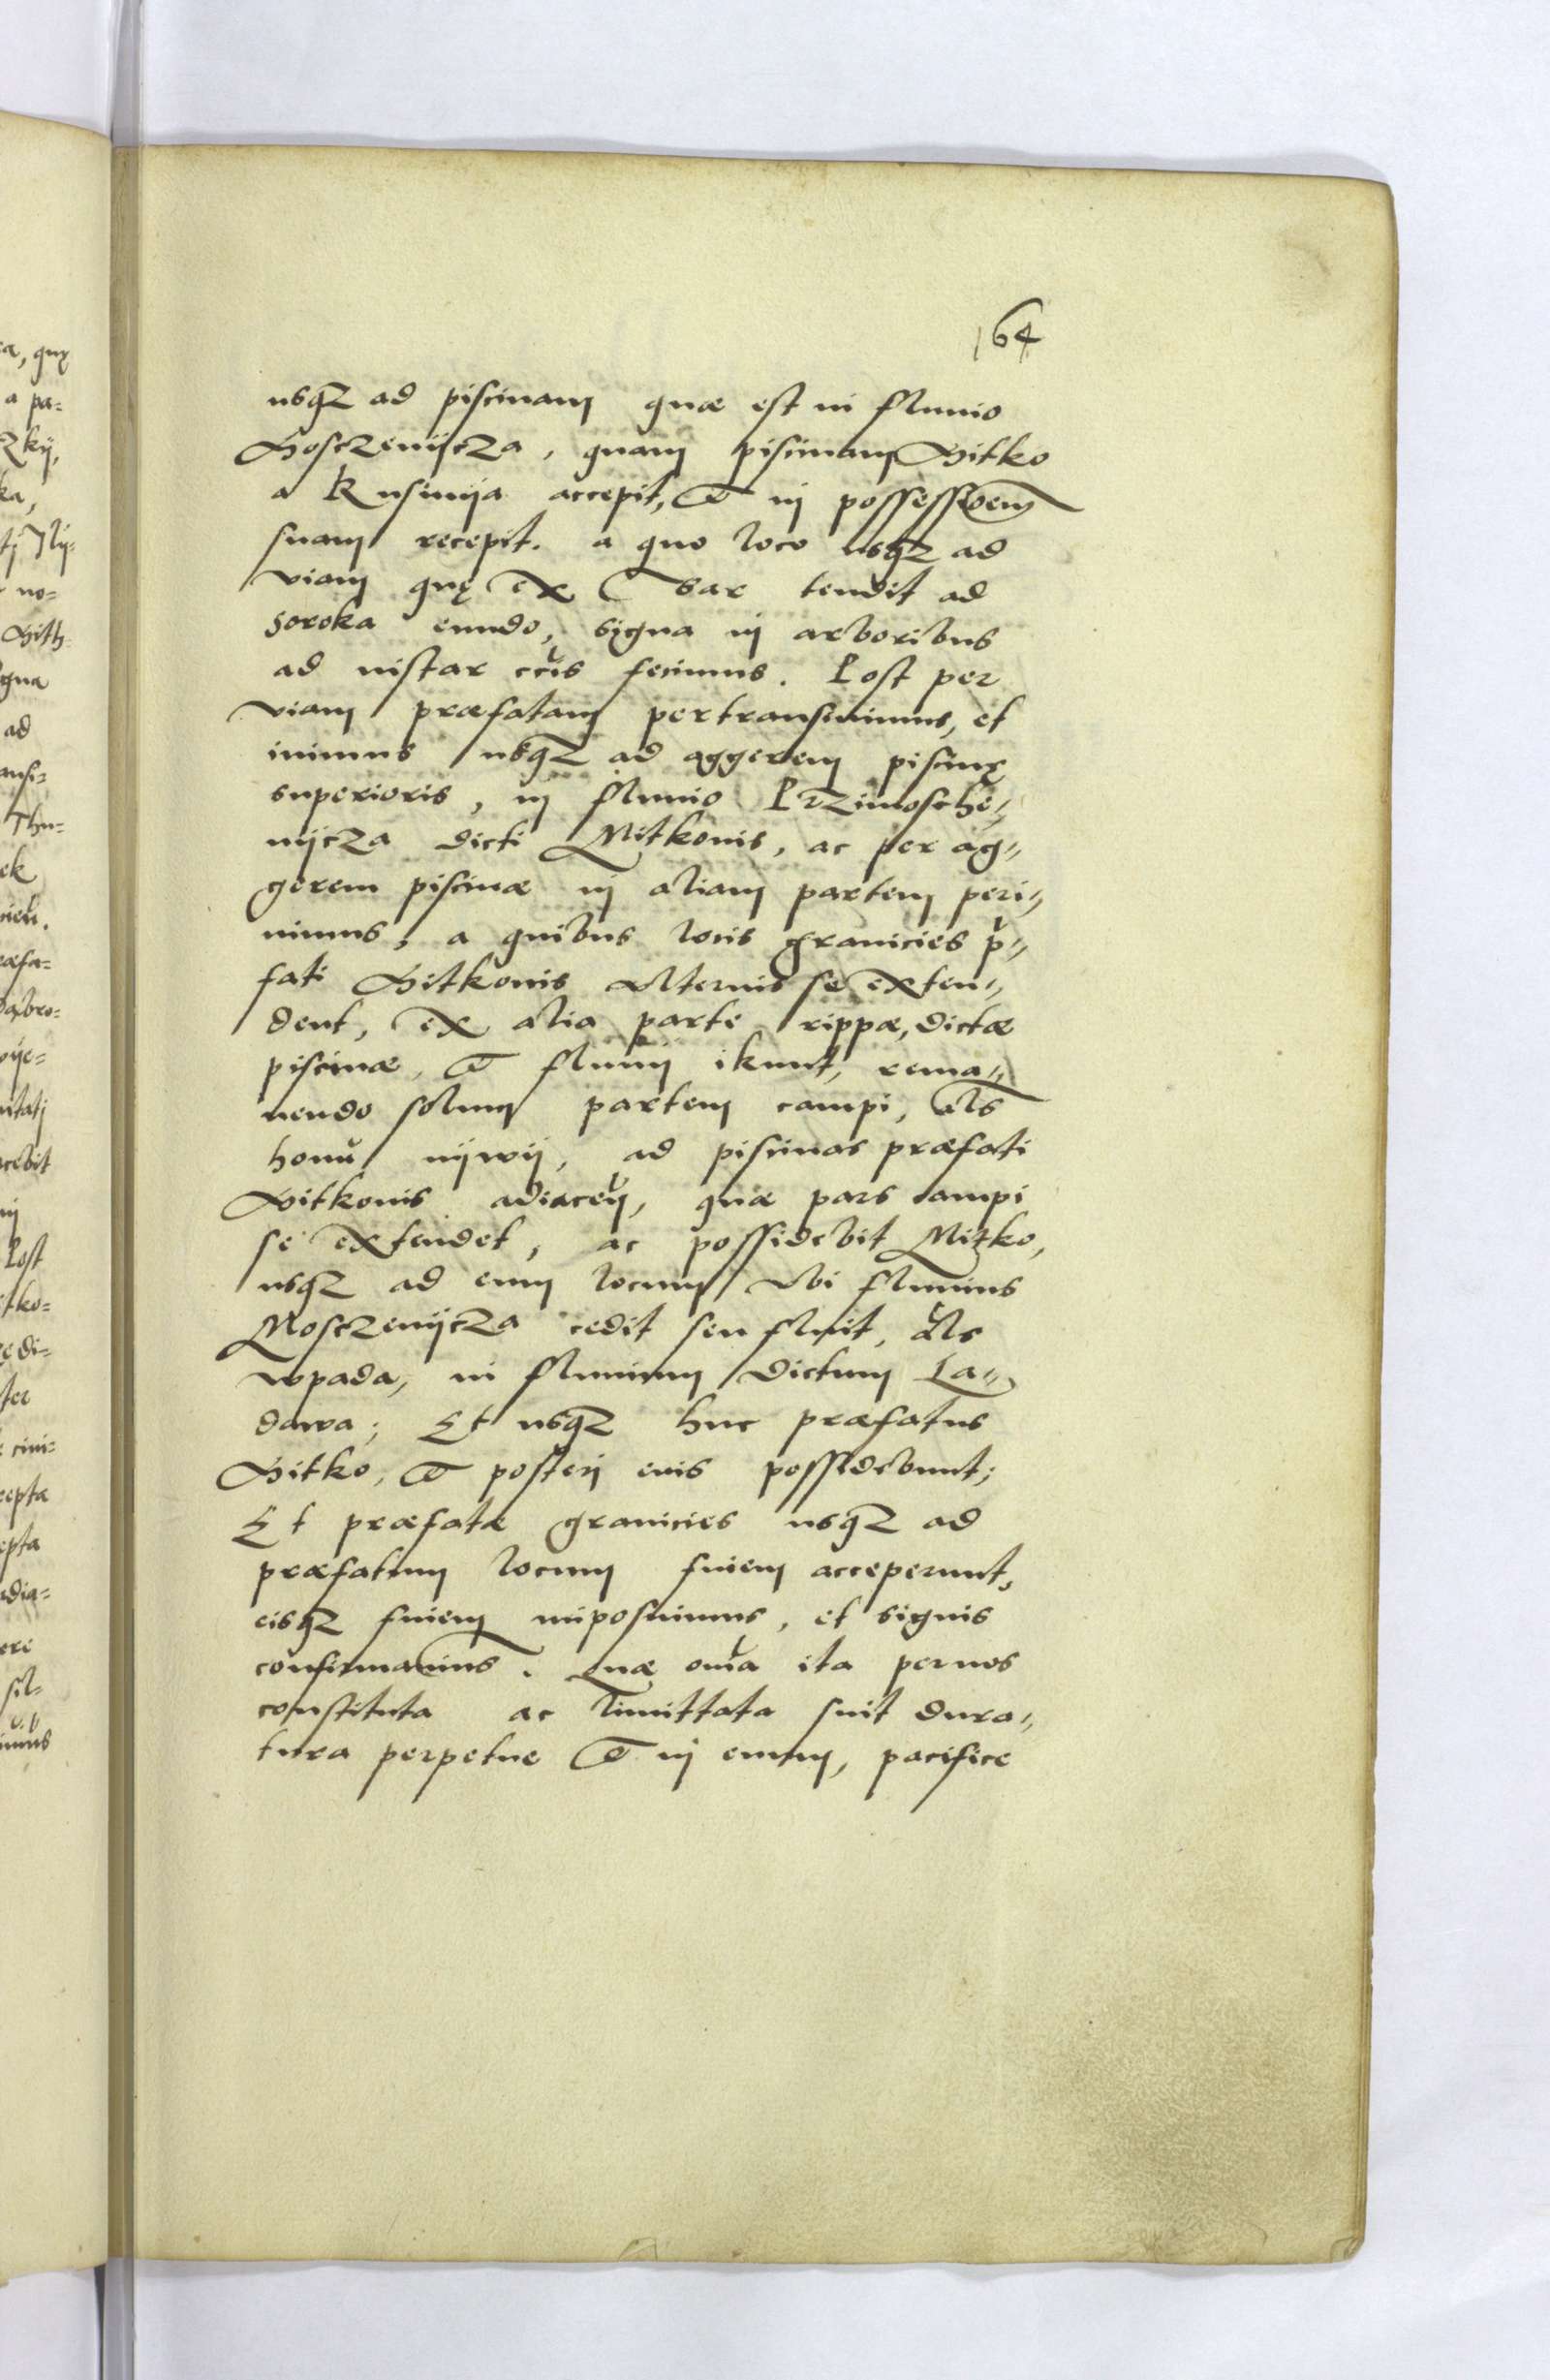 164
usq₃ ad piscinam quæ est in fluuio
Mosczenijcza, quam piscinam Mitko
a Kusmija accepit, et in possessioem
suam recepit. a quo loco usq₃ ad
viam quę ex Bar tendit ad
Soroka eundo, signa in arboribus
ad instar crucis fecimus. Post per
viam præfatam pertransiuimus, et
iuimus usq₃ ad aggerem piscinę
superioris, in fluuio Przimosche„
nijcza dicti Mitkonis, ac per ag„
gerem piscinæ in aliam partem peri„
uimus, a quibus locis granicies p„
fati Mitkonis ulterius se exten„
dent, ex alia parte rippæ, dictæ
piscinæ, et fluuij ikunt, rema„
nendo solum partem campi, als
honu nijwij, ad piscinas præfati
Mitkonis adiacen, quæ pars campi
se extendet, ac possidebit Mitko,
usq₃ ad eum locum ubi fluuius
Mosczenijcza cedit seu fluit, als
wpada, in fluuium dictum La„
dawa; Et usq₃ huc præfatus
Mitko, et posterj euis possidebunt;
Et præfatæ granicies usq₃ ad
præfatum locum finem acceperunt,
eisq₃ finem imposuimus, et signis
confirmauimus. Quæ oia ita per nos
constituta ac limittata sint dura„
tura perpetue et in euum, pacifice
ad
ek
ka,
no=